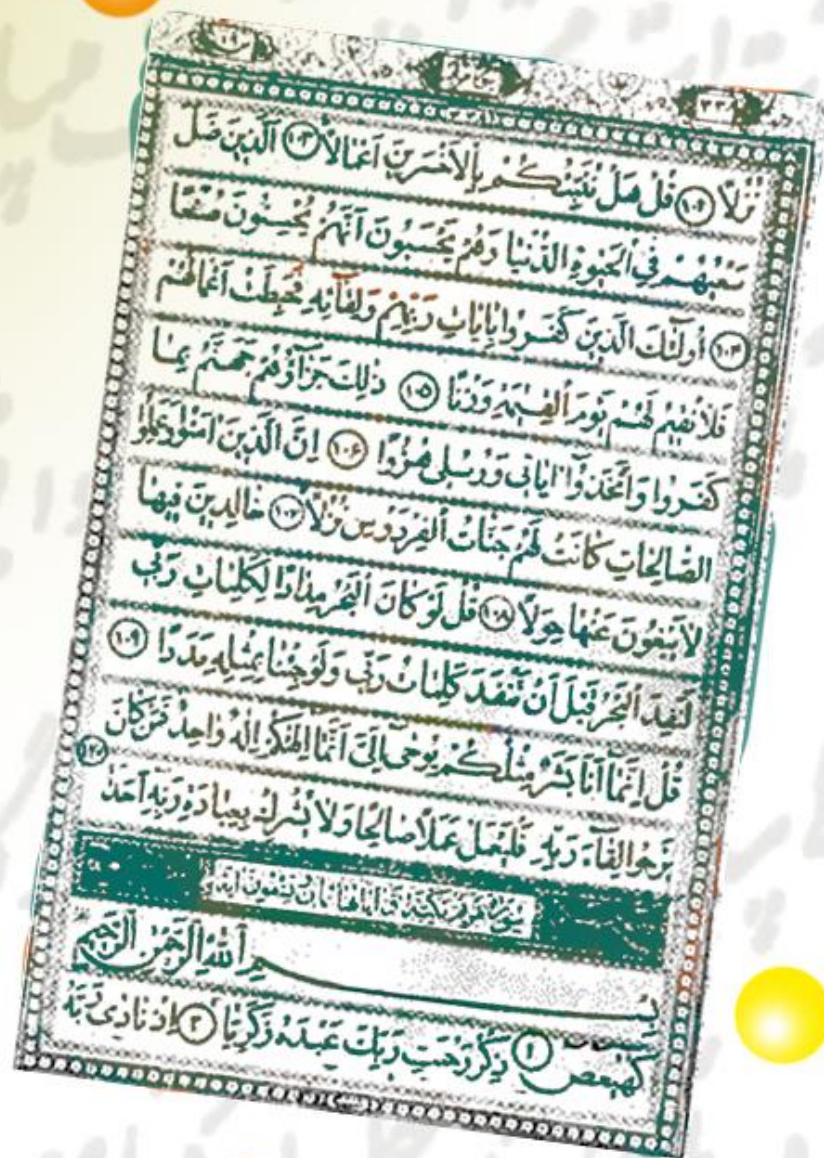 نُزُلًا ﴿١٠٢﴾ قُلْ هَلْ نُنَبِّئُكُمْ بِالْأَخْسَرِينَ أَعْمَالًا ﴿١٠٣﴾ اَلَّذِينَ ضَلَّ
سَعْيُهُمْ فِي الْحَيٰوةِ الدُّنْيَا وَهُمْ يَحْسَبُونَ أَنَّهُمْ يُحْسِنُونَ صُنْعًا
﴿١٠٤﴾ أُولٰئِكَ الَّذِينَ كَفَرُوا بِاٰيَاتِ رَبِّهِمْ وَلِقَائِهِ فَحَبِطَتْ أَعْمَالُهُمْ
فَلَا نُقِيمُ لَهُمْ يَوْمَ الْقِيٰمَةِ وَزْنًا ﴿١٠٥﴾ ذٰلِكَ جَزَاؤُهُمْ جَهَنَّمُ بِمَا
كَفَرُوا وَاتَّخَذُوا اٰيَاتِي وَرُسُلِي هُزُوًا ﴿١٠۶﴾ اِنَّ الَّذِينَ اٰمَنُوا وَعَمِلُوا
الصَّالِحَاتِ كَانَتْ لَهُمْ جَنَّاتُ الْفِرْدَوْسِ نُزُلًا ﴿١٠٧﴾ خَالِدِينَ فِيهَا
لَا يَبْغُونَ عَنْهَا حِوَلًا ﴿١٠٨﴾ قُلْ لَوْ كَانَ الْبَحْرُ مِدَادًا لِكَلِمَاتِ رَبِّي
لَنَفِدَ الْبَحْرُ قَبْلَ أَنْ تَنْفَدَ كَلِمَاتُ رَبِّي وَلَوْ جِئْنَا بِمِثْلِهِ مَدَدًا ﴿١٠٩﴾
قُلْ اِنَّمَا أَنَا بَشَرٌ مِثْلُكُمْ يُوحٰى اِلَيَّ أَنَّمَا اِلٰهُكُمْ اِلٰهٌ وَاحِدٌ فَمَنْ كَانَ
يَرْجُوا لِقَاءَ رَبِّهِ فَلْيَعْمَلْ عَمَلًا صَالِحًا وَلَا يُشْرِكْ بِعِبَادَةِ رَبِّهِ أَحَدًا
بِسْمِ اللهِ الرَّحْمٰنِ الرَّحِيمِ
كۤهٰيٰعۤصۤ ﴿١﴾ ذِكْرُ رَحْمَتِ رَبِّكَ عَبْدَهُ زَكَرِيَّا ﴿٢﴾ اِذْ نَادٰى رَبَّهُ